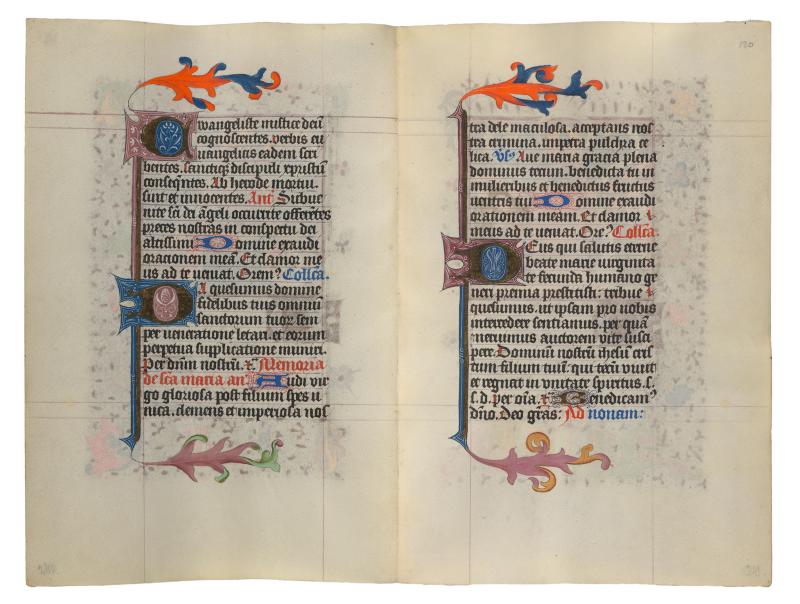 Ewangeliste mistice deū
cognoscentes. verbis eu
uangelicis eadem scri
bentes. sanctiq̄ discipuli xp̄istum
conseq̄ntes. Ab herode mortui.
sunt et innocentes. Anť Subue
nite sc̄i dei āgeli occurrite offerētes
preces nostras in conspectu dei
altissimi Domine exaudi
orationem meā. Et clamor me
us ad te veniat. Oremꝰ Collc̄a.
quesumus domine
fidelibus tuis omniū
sanctorum tuor̄ sem
per veneratione letari. et eorum
perpetua supplicatione muniri.
Per dnm nostrū. Memoria
de sc̄a maria an̄ Audi vir
go gloriosa post filium spes u
nica. clemens et imperiosa nos
120
tra dele maculosa. acceptans nos
tra crimina. impera pulchra ce
lica. Vs Aue maria gracia plena
dominus tecum. benedicta tu in
mulieribus et benedictus fructus
uentris tui Domine exaudi
orationem meam. Et clamor
meus ad te veniat. Oreꝰ Collc̄a.
Deus qui salutis eterne
beate marie uirginita
te fecunda humano ge
neri premia prestitisti: tribue
quesumus. ut ipsam pro nobis
intercedere sentiamus. per quā
meruimus auctorem vite susci
pere. Dominū nostrū ihesū
tum filium tuū. qui tecū viuit
et regnat in vnitate spiritus. s.
s. d. per oīa. Benedicamꝰ
dn̄o. Deo grās: Ad nonam: